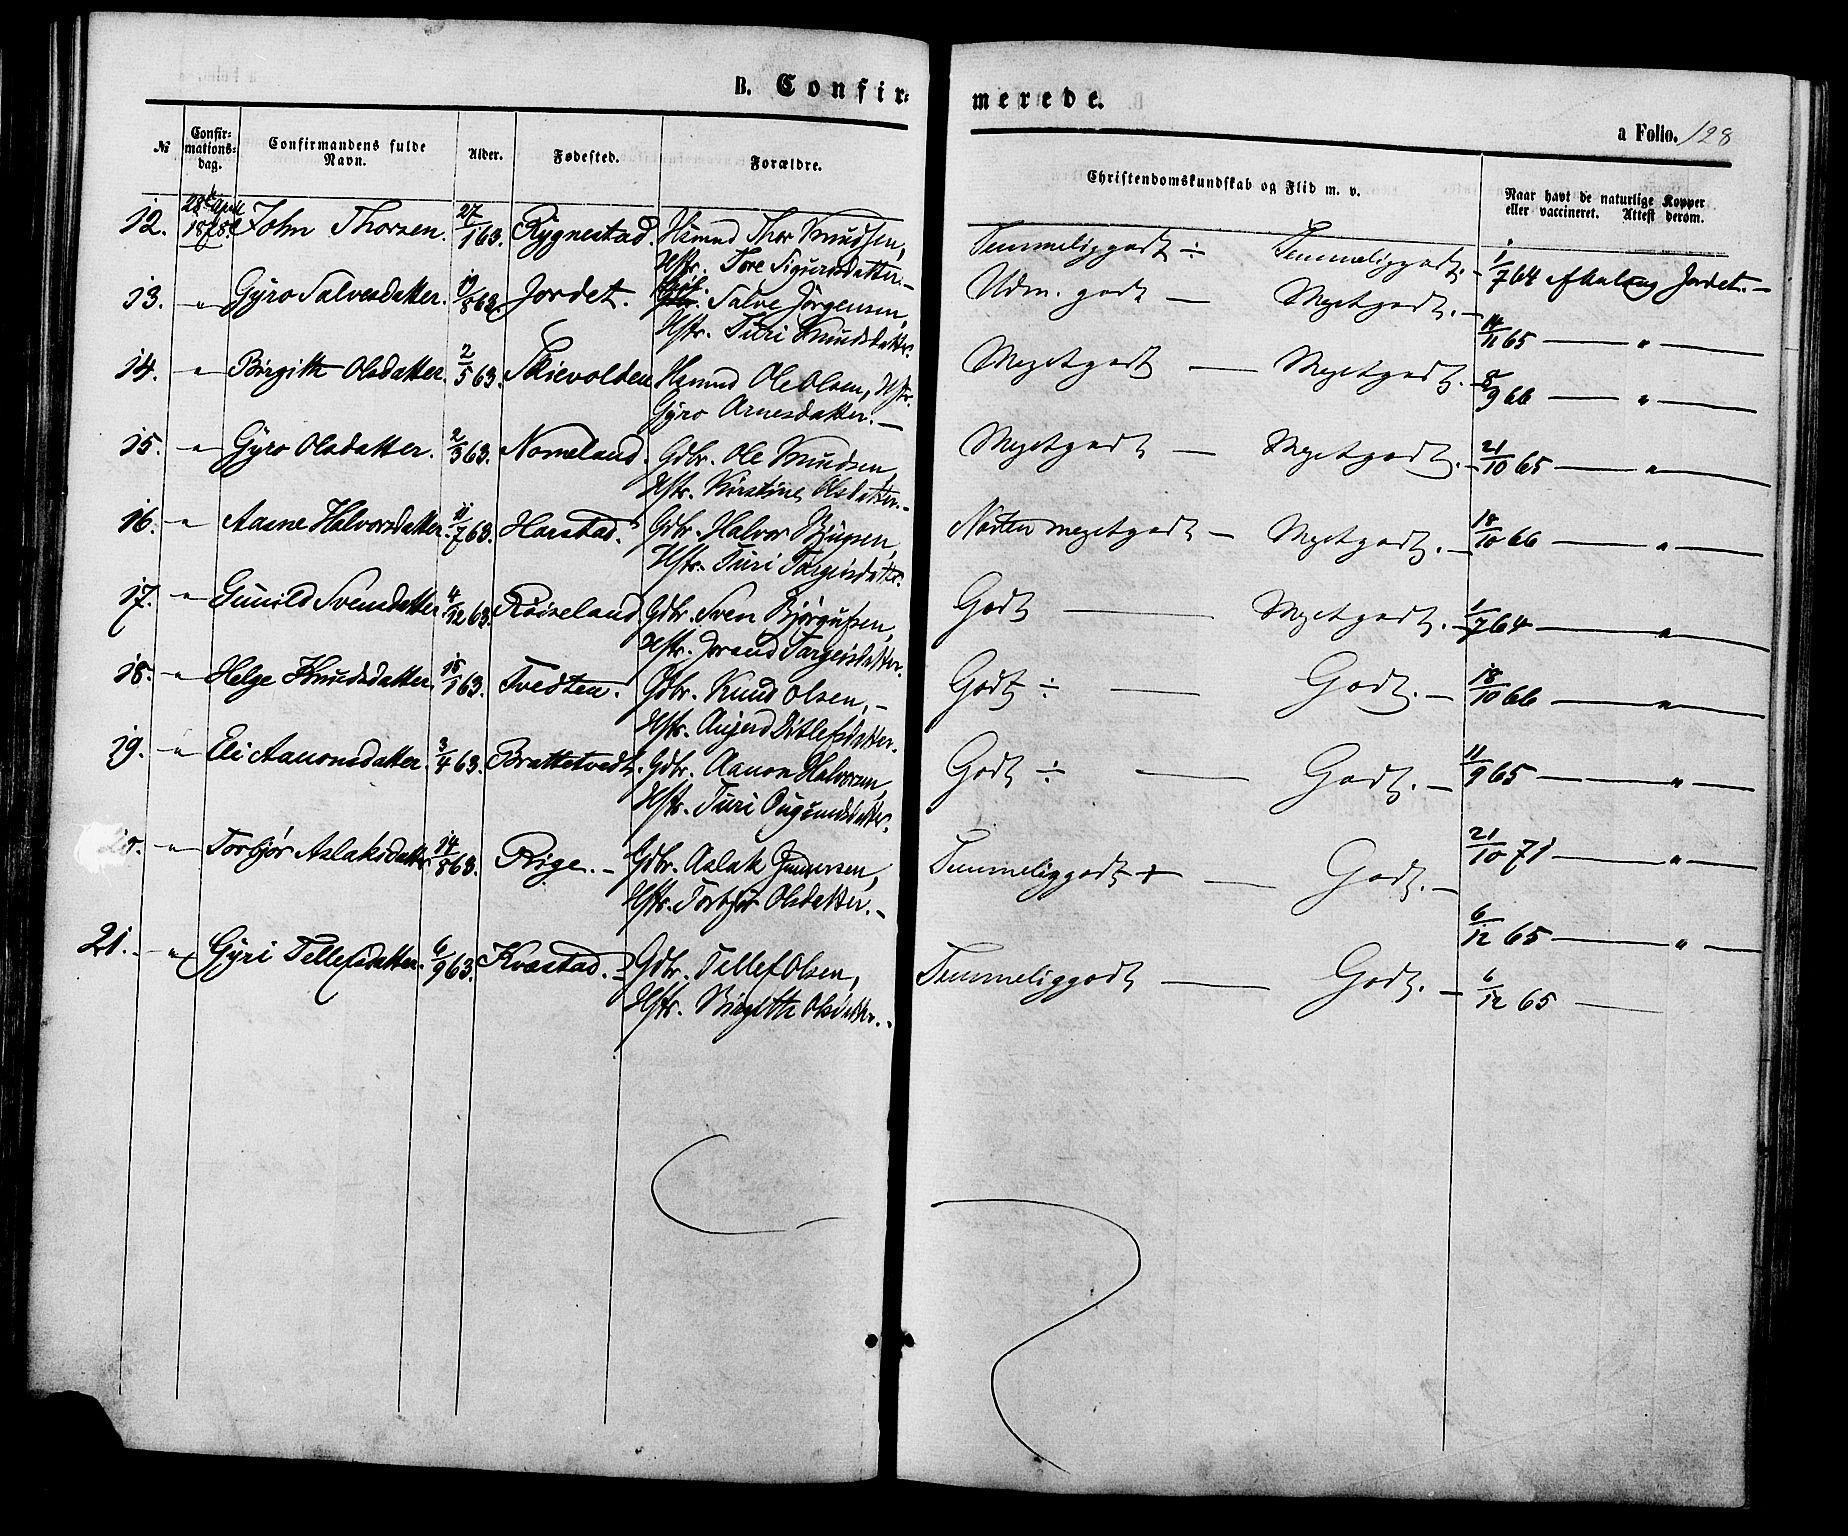 B. Confir-
merede.
a Folio. 128
№
Confir-
mations-
dag.
Confirmandens fulde
Navn.
Alder.
Fødested.
Forældre.
Christendomskundskab og Flid m. v.
Naar havt de naturlige Kopper
eller vaccineret. Attest derom.
12. 28de April 1878. John Thorsen. 27/1 63. Rygnestad. Hsmnd Thor Knudsen,
Hstr. Tore Sigursdatter.-
Temmeliggodt ÷ Temmeliggodt.- 1/7 64 Jordet.-
13. " Gyro Salvesdatter. 19/8 63. Jordet. Salve Jørgensen,
Hstr. Turi Knudsdatter.
Udm. godt — Megetgodt.- 14/11 65 — " —
14. " Birgith Olsdatter. 2/5 63. Skievolden Hsmnd Ole Olsen, Hstr.
Gyro Arnesdatter.-
Megetgodt — Megetgodt.- 8/9 66 — " —
15. " Gyro Olsdatter. 2/3 63. Nomeland. Gdbr. Ole Knudsen,
Hstr. Kirstine Olsdatter.-
Megetgodt — Megetgodt.- 21/10 65 — " —
16. " Aasne Halvorsdatter. 11/7 63. Harstad. Gdbr. Halvor
Hstr. Turi Targeisdatter.
Næsten megetgodt — Megetgodt.- 18/10 66 — " —
17. " Gunild Svensdatter. 4/12 63. Røiseland. Gdbr. Sven Bjørgufsen,
Hstr. Jorand Targeisdatter.
Godt — Megetgodt.- 1/7 64 — " —
18. " Helge Knudsdatter. 15/1 63. Tvedten. Gdbr. Knud Olsen,-
Hstr. Ditlefsdatter.
Godt ÷ — Godt.- 18/10 66 — " —
19. " Eli Aanonsdatter. 3/4 63. Brottetvedt. Gdbr. Aanon Halvorsen,
Hstr. Turi Ougundsdatter.
Godt ÷ — Godt.- 11/9 65 — " —
20. " Torbjør Aslaksdatter 14/8 63. Rige.- Gdbr. Aslak Gundersen,
Hstr. Torbjør Olsdatter.-
Temmeliggodt + — Godt.- 21/10 71 — " —
6/12 65 — " —
21. " Gyri Tellefsdatter. 6/9 63. Kvæstad. Gdbr. Tellef Olsen,
Hstr. Birgitte Olsdatter.-
Temmeliggodt — Godt.- 6/12 65 —